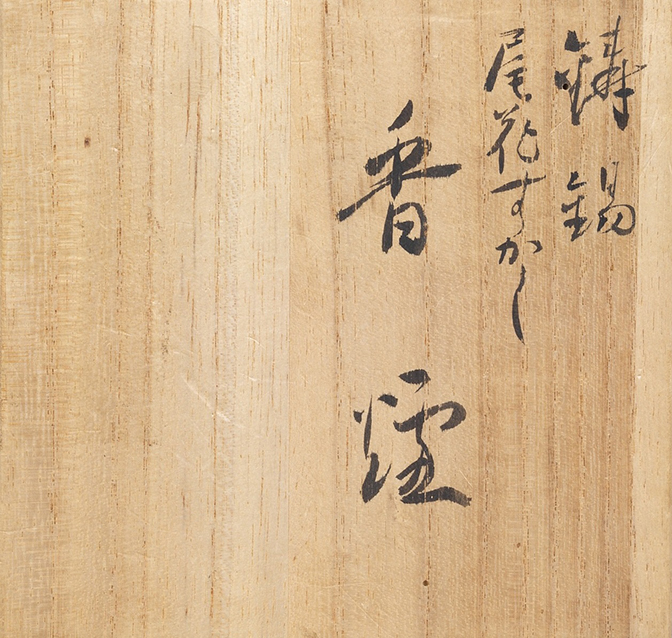 鋳錫
尾花すかし
香爐